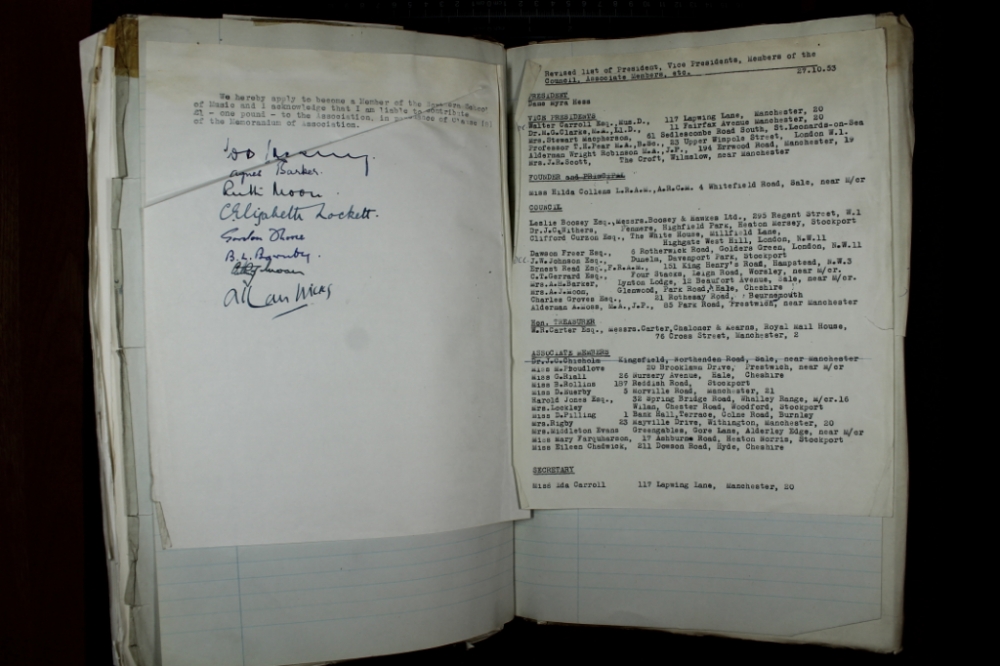 We hereby apply to become a Member of the Northern School
of Music and I acknowledge that I am liable to contribute
£1 - one pound - to the Association, in pursuance of Clause
of the Memorandum of Association.
Agnes Barker.
Ruth Moon.
C Elizabeth Lockett.
Gordon Thorne
Allan Wicks
Revised list of President, Vice Presidents, Members of the
Council, Associate Members, etc.
27.10.53
PRESIDENT
Dame Myra Hess
VICE PRESIDENTS
Walter Carroll Esq., Mus.D., 117 Lapwing Lane, Manchester, 20
Dr.H.G.Clarke,M.A.,Ll.D., 11 Fairfax Avenue Manchester, 20
Mrs.Stewart Macpherson, 61 Sedlescombe Road South, St.Leonards-on-Sea
Professor T.H.Pear M.A.,B.Sc., 23 Upper Wimpole Street, London W.1.
Alderman Wright Robinson M.A.,J.P., 194 Errwood Road, Manchester, 19
Mrs.J.R.Scott, The Croft, Wilmslow, near Manchester
FOUNDER and PRINCIPAL
Miss Hilda Collens L.R.A.M.,A.R.C.M. 4 Whitefield Road, Sale, near M/cr
COUNCIL
Leslie Boosey Esq.,Messrs.Boosey & Hawkes Ltd., 295 Regent Street, W.1
Dr.J.C.Withers, Penmere, Highfield Park, Heaton Mersey, Stockport
Clifford Curzon Esq., The White House, Millfield Lane,
Highgate West Hill, London, N.W.11
Dawson Freer Esq., 6 Rotherwick Road, Golders Green, London, N.W.11
J.W.Johnson Esq., Dunelm, Davenport Park, Stockport
Ernest Read Esq.,F.R.A.M., 151 King Henry's Road, Hampstead, N.W.3
C.T.Gerrard Esq., Four Stacks, Leigh Road, Worsley, near M/cr.
Mrs.A.H.Barker, Lynton Lodge, 12 Beaufort Avenue, Sale, near M/cr.
Mrs.A.J.Moon, Glenwood, Park Road, Hale, Cheshire
Charles Groves Esq., 21 Rothesay Road, Bournemouth
Alderman A.Moss, M.A.,J.P., 85 Park Road, Prestwich, near Manchester
Hon. TREASURER
W.R.Carter Esq., Messrs.Carter,Chaloner & Kearns, Royal Mail House,
76 Cross Street, Manchester, 2
ASSOCIATE MEMBERS
Dr.J.C.Chisholm Kingsfield, Northenden Road, Sale, near Manchester
Miss M.Proudlove 20 Brooklawn Drive, Prestwich, near M/cr
Miss G.Riall 26 Nursery Avenue, Hale, Cheshire
Miss B.Rollins 187 Reddish Road, Stockport
Miss D.Nuerby 5 Norville Road, Manchester, 21
Harold Jones Esq., 32 Spring Bridge Road, Whalley Range, M/cr.16
Mrs.Lockley Wilan, Chester Road, Woodford, Stockport
Miss D.Pilling 1 Bank Hall,Terrace, Colne Road, Burnley
Mrs.Rigby 23 Mayville Drive, Withington, Manchester, 20
Mrs.Middleton Evans Greengables, Gore Lane, Alderley Edge, near M/cr
Miss Mary Farquharson, 17 Ashburne Road, Heaton Norris, Stockport
Miss Eileen Chadwick, 211 Dowson Road, Hyde, Cheshire
SECRETARY
Miss Ida Carroll 117 Lapwing Lane, Manchester, 20